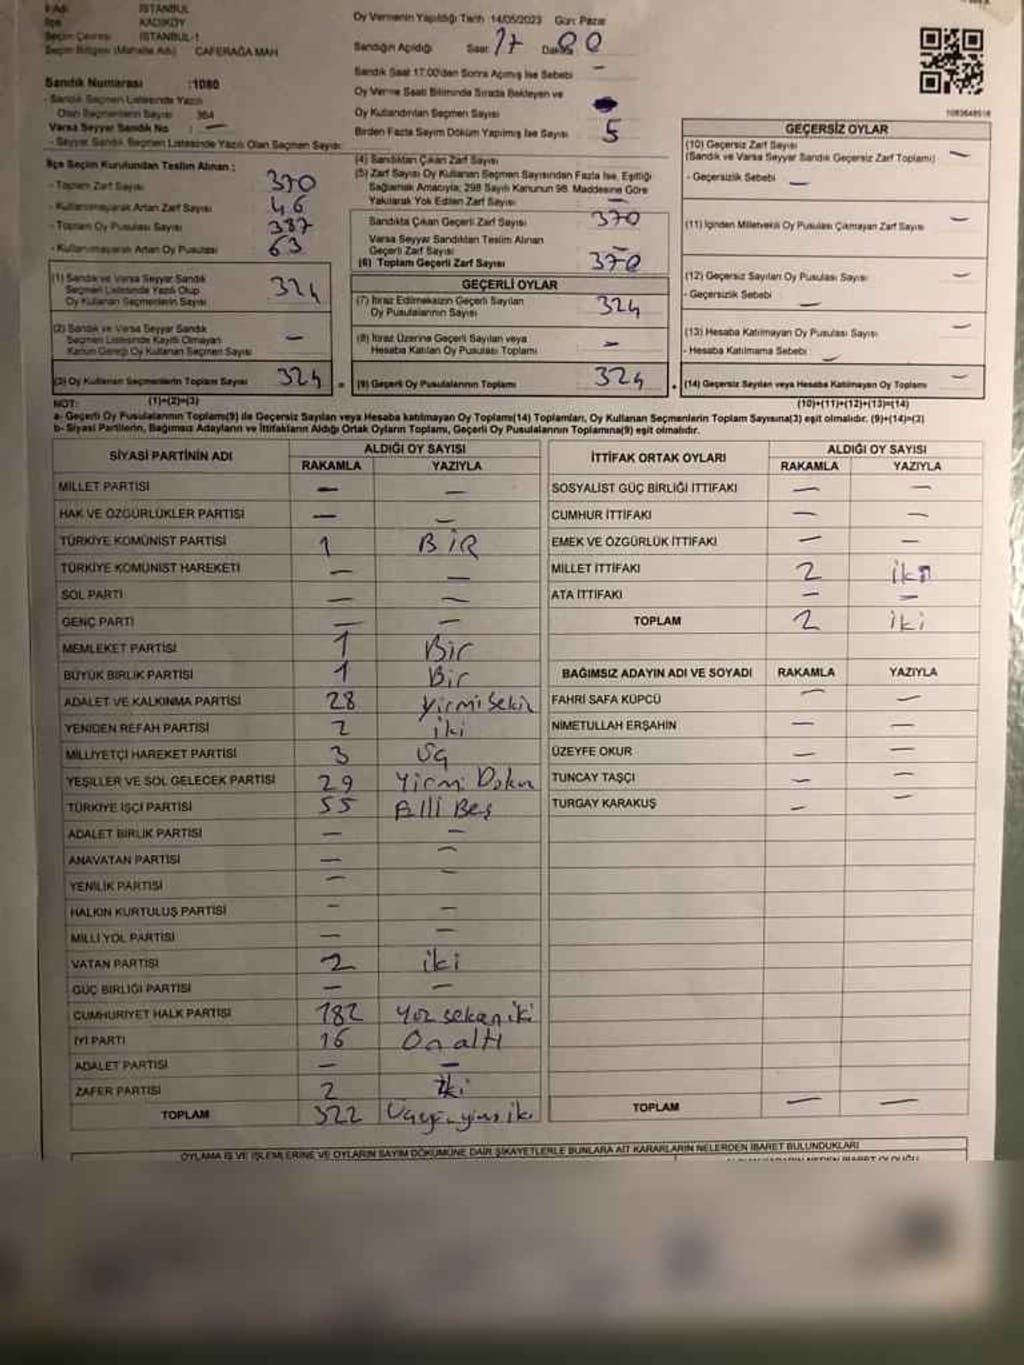 İli Adı İSTANBUL
İlçe KADIKÖY
Seçim Çevresi İSTANBUL-1
Seçim Bölgesi (Mahalle Adı) CAFERAĞA MAH
Sandık Numarası :1080
- Sandık Seçmen Listesinde Yazılı
Olan Seçmenlerin Sayısı 364
Varsa Seyyar Sandık No : —
- Seyyar Sandık Seçmen Listesinde Yazılı Olan Seçmen Sayısı:
İlçe Seçim Kurulundan Teslim Alınan :
- Toplam Zarf Sayısı 370
- Kullanılmayarak Artan Zarf Sayısı 46
- Toplam Oy Pusulası Sayısı 387
- Kullanılmayarak Artan Oy Pusulası 63
(1) Sandık ve Varsa Seyyar Sandık
Seçmen Listesinde Yazılı Olup
Oy Kullanan Seçmenlerin Sayısı 324
(2) Sandık ve Varsa Seyyar Sandık
Seçmen Listesinde Kayıtlı Olmayan
Kanun Gereği Oy Kullanan Seçmen Sayısı —
(3) Oy Kullanan Seçmenlerin Toplam Sayısı 324 =
Oy Vermenin Yapıldığı Tarih 14/05/2023 Gün: Pazar
Sandığın Açıldığı Saat 17 Dakika 00
Sandık Saat 17:00'den Sonra Açılmış İse Sebebi —
Oy Verme Saati Bitiminde Sırada Bekleyen ve
Oy Kullandırılan Seçmen Sayısı
Birden Fazla Sayım Döküm Yapılmış İse Sayısı 5
(4) Sandıktan Çıkan Zarf Sayısı
(5) Zarf Sayısı Oy Kullanan Seçmen Sayısından Fazla İse, Eşitliği
Sağlamak Amacıyla; 298 Sayılı Kanunun 98. Maddesine Göre
Yakılarak Yok Edilen Zarf Sayısı —
Sandıkta Çıkan Geçerli Zarf Sayısı 370
Varsa Seyyar Sandıktan Teslim Alınan
Geçerli Zarf Sayısı —
(6) Toplam Geçerli Zarf Sayısı 370
GEÇERLİ OYLAR
(7) İtiraz Edilmeksizin Geçerli Sayılan
Oy Pusulalarının Sayısı 324
(8) İtiraz Üzerine Geçerli Sayılan veya
Hesaba Katılan Oy Pusulası Toplamı —
(9) Geçerli Oy Pusulalarının Toplamı 324 +
1083648518
GEÇERSİZ OYLAR
(10) Geçersiz Zarf Sayısı
(Sandık ve Varsa Seyyar Sandık Geçersiz Zarf Toplamı) —
- Geçersizlik Sebebi —
(11) İçinden Milletvekili Oy Pusulası Çıkmayan Zarf Sayısı —
(12) Geçersiz Sayılan Oy Pusulası Sayısı —
- Geçersizlik Sebebi —
(13) Hesaba Katılmayan Oy Pusulası Sayısı —
- Hesaba Katılmama Sebebi —
(14) Geçersiz Sayılan veya Hesaba Katılmayan Oy Toplamı —
NOT: (1)+(2)=(3) (10)+(11)+(12)+(13)=(14)
a- Geçerli Oy Pusulalarının Toplamı(9) ile Geçersiz Sayılan veya Hesaba katılmayan Oy Toplamı(14) Toplamları, Oy Kullanan Seçmenlerin Toplam Sayısına(3) eşit olmalıdır. (9)+(14)=(3)
b- Siyasi Partilerin, Bağımsız Adayların ve İttifakların Aldığı Ortak Oyların Toplamı, Geçerli Oy Pusulalarının Toplamına(9) eşit olmalıdır.
SİYASİ PARTİNİN ADI ALDIĞI OY SAYISI
RAKAMLA YAZIYLA
MİLLET PARTİSİ — —
HAK VE ÖZGÜRLÜKLER PARTİSİ — —
TÜRKİYE KOMÜNİST PARTİSİ 1 BİR
TÜRKİYE KOMÜNİST HAREKETİ — —
SOL PARTİ — —
GENÇ PARTİ — —
MEMLEKET PARTİSİ 1 Bir
BÜYÜK BİRLİK PARTİSİ 1 Bir
ADALET VE KALKINMA PARTİSİ 28 Yirmi Sekiz
YENİDEN REFAH PARTİSİ 2 iki
MİLLİYETÇİ HAREKET PARTİSİ 3 Üç
YEŞİLLER VE SOL GELECEK PARTİSİ 29 Yirmi Dokuz
TÜRKİYE İŞÇİ PARTİSİ 55 Elli Beş
ADALET BİRLİK PARTİSİ — —
ANAVATAN PARTİSİ — —
YENİLİK PARTİSİ — —
HALKIN KURTULUŞ PARTİSİ — —
MİLLİ YOL PARTİSİ — —
VATAN PARTİSİ 2 iki
GÜÇ BİRLİĞİ PARTİSİ — —
CUMHURİYET HALK PARTİSİ 182 Yüz seksen iki
İYİ PARTİ 16 On altı
ADALET PARTİSİ — —
ZAFER PARTİSİ 2 İki
TOPLAM 322
İTTİFAK ORTAK OYLARI ALDIĞI OY SAYISI
RAKAMLA YAZIYLA
SOSYALİST GÜÇ BİRLİĞİ İTTİFAKI — —
CUMHUR İTTİFAKI — —
EMEK VE ÖZGÜRLÜK İTTİFAKI — —
MİLLET İTTİFAKI 2 iki
ATA İTTİFAKI — —
TOPLAM 2 iki
BAĞIMSIZ ADAYIN ADI VE SOYADI RAKAMLA YAZIYLA
FAHRİ SAFA KÜPCÜ — —
NİMETULLAH ERŞAHİN — —
ÜZEYFE OKUR — —
TUNCAY TAŞÇI — —
TURGAY KARAKUŞ — —
TOPLAM — —
OYLAMA İŞ VE İŞLEMLERİNE VE OYLARIN SAYIM DÖKÜMÜNE DAİR ŞİKAYETLERLE BUNLARA AİT KARARLARIN NELERDEN İBARET BULUNDUKLARI